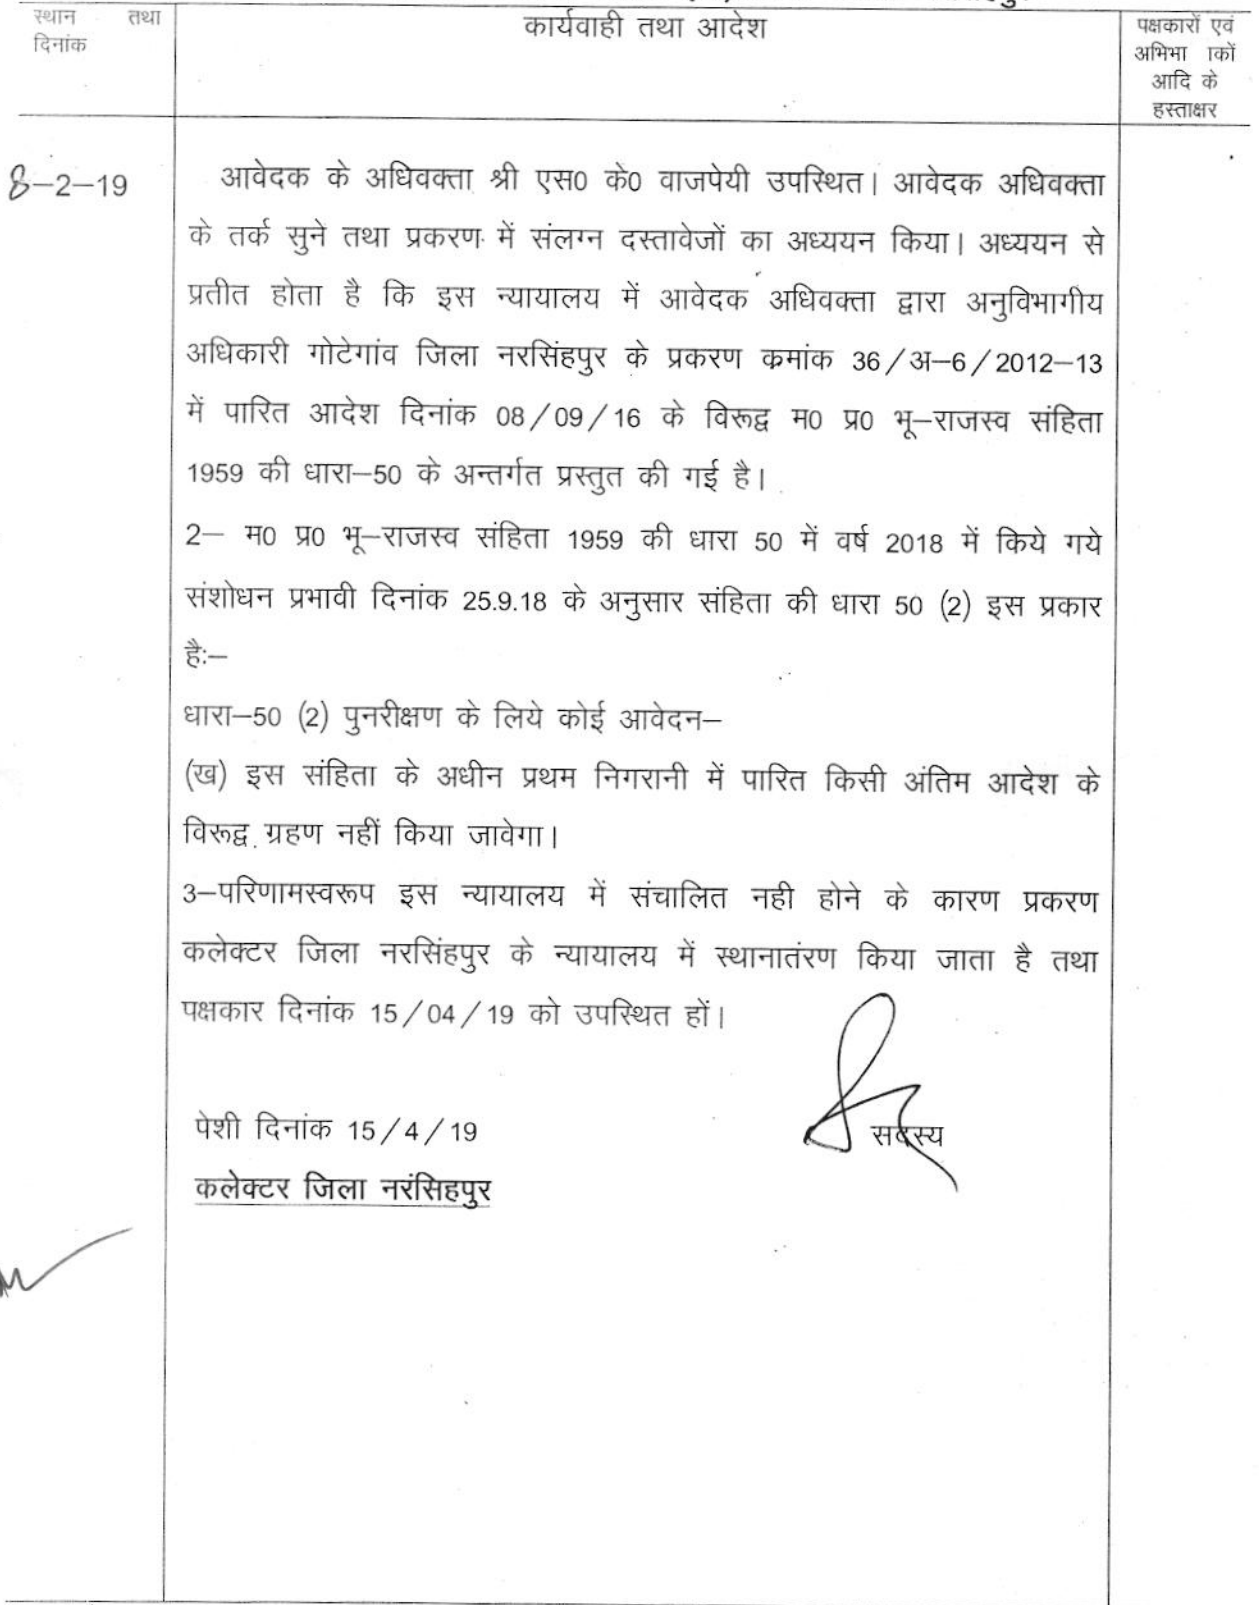 स्थान तथा
दिनांक
कार्यवाही तथा आदेश
पक्षकारों एवं
अभिभा ाकों
आदि के
हस्ताक्षर
8–2–19
आवेदक के अधिवक्ता श्री एस0 के0 वाजपेयी उपस्थित। आवेदक अधिवक्ता
के तर्क सुने तथा प्रकरण में संलग्न दस्तावेजों का अध्ययन किया। अध्ययन से
प्रतीत होता है कि इस न्यायालय में आवेदक अधिवक्ता द्वारा अनुविभागीय
अधिकारी गोटेगांव जिला नरसिंहपुर के प्रकरण कमांक 36/अ–6/2012–13
में पारित आदेश दिनांक 08/09/16 के विरूद्व म0 प्र0 भू–राजस्व संहिता
1959 की धारा–50 के अन्तर्गत प्रस्तुत की गई है।
2– म0 प्र0 भू–राजस्व संहिता 1959 की धारा 50 में वर्ष 2018 में किये गये
संशोधन प्रभावी दिनांक 25.9.18 के अनुसार संहिता की धारा 50 (2) इस प्रकार
है:–
धारा–50 (2) पुनरीक्षण के लिये कोई आवेदन–
(ख) इस संहिता के अधीन प्रथम निगरानी में पारित किसी अंतिम आदेश के
विरूद्व ग्रहण नहीं किया जावेगा।
3–परिणामस्वरूप इस न्यायालय में संचालित नही होने के कारण प्रकरण
कलेक्टर जिला नरसिंहपुर के न्यायालय में स्थानातंरण किया जाता है तथा
पक्षकार दिनांक 15/04/19 को उपस्थित हों।
सदस्य
पेशी दिनांक 15/4/19
कलेक्टर जिला नरंसिहपुर